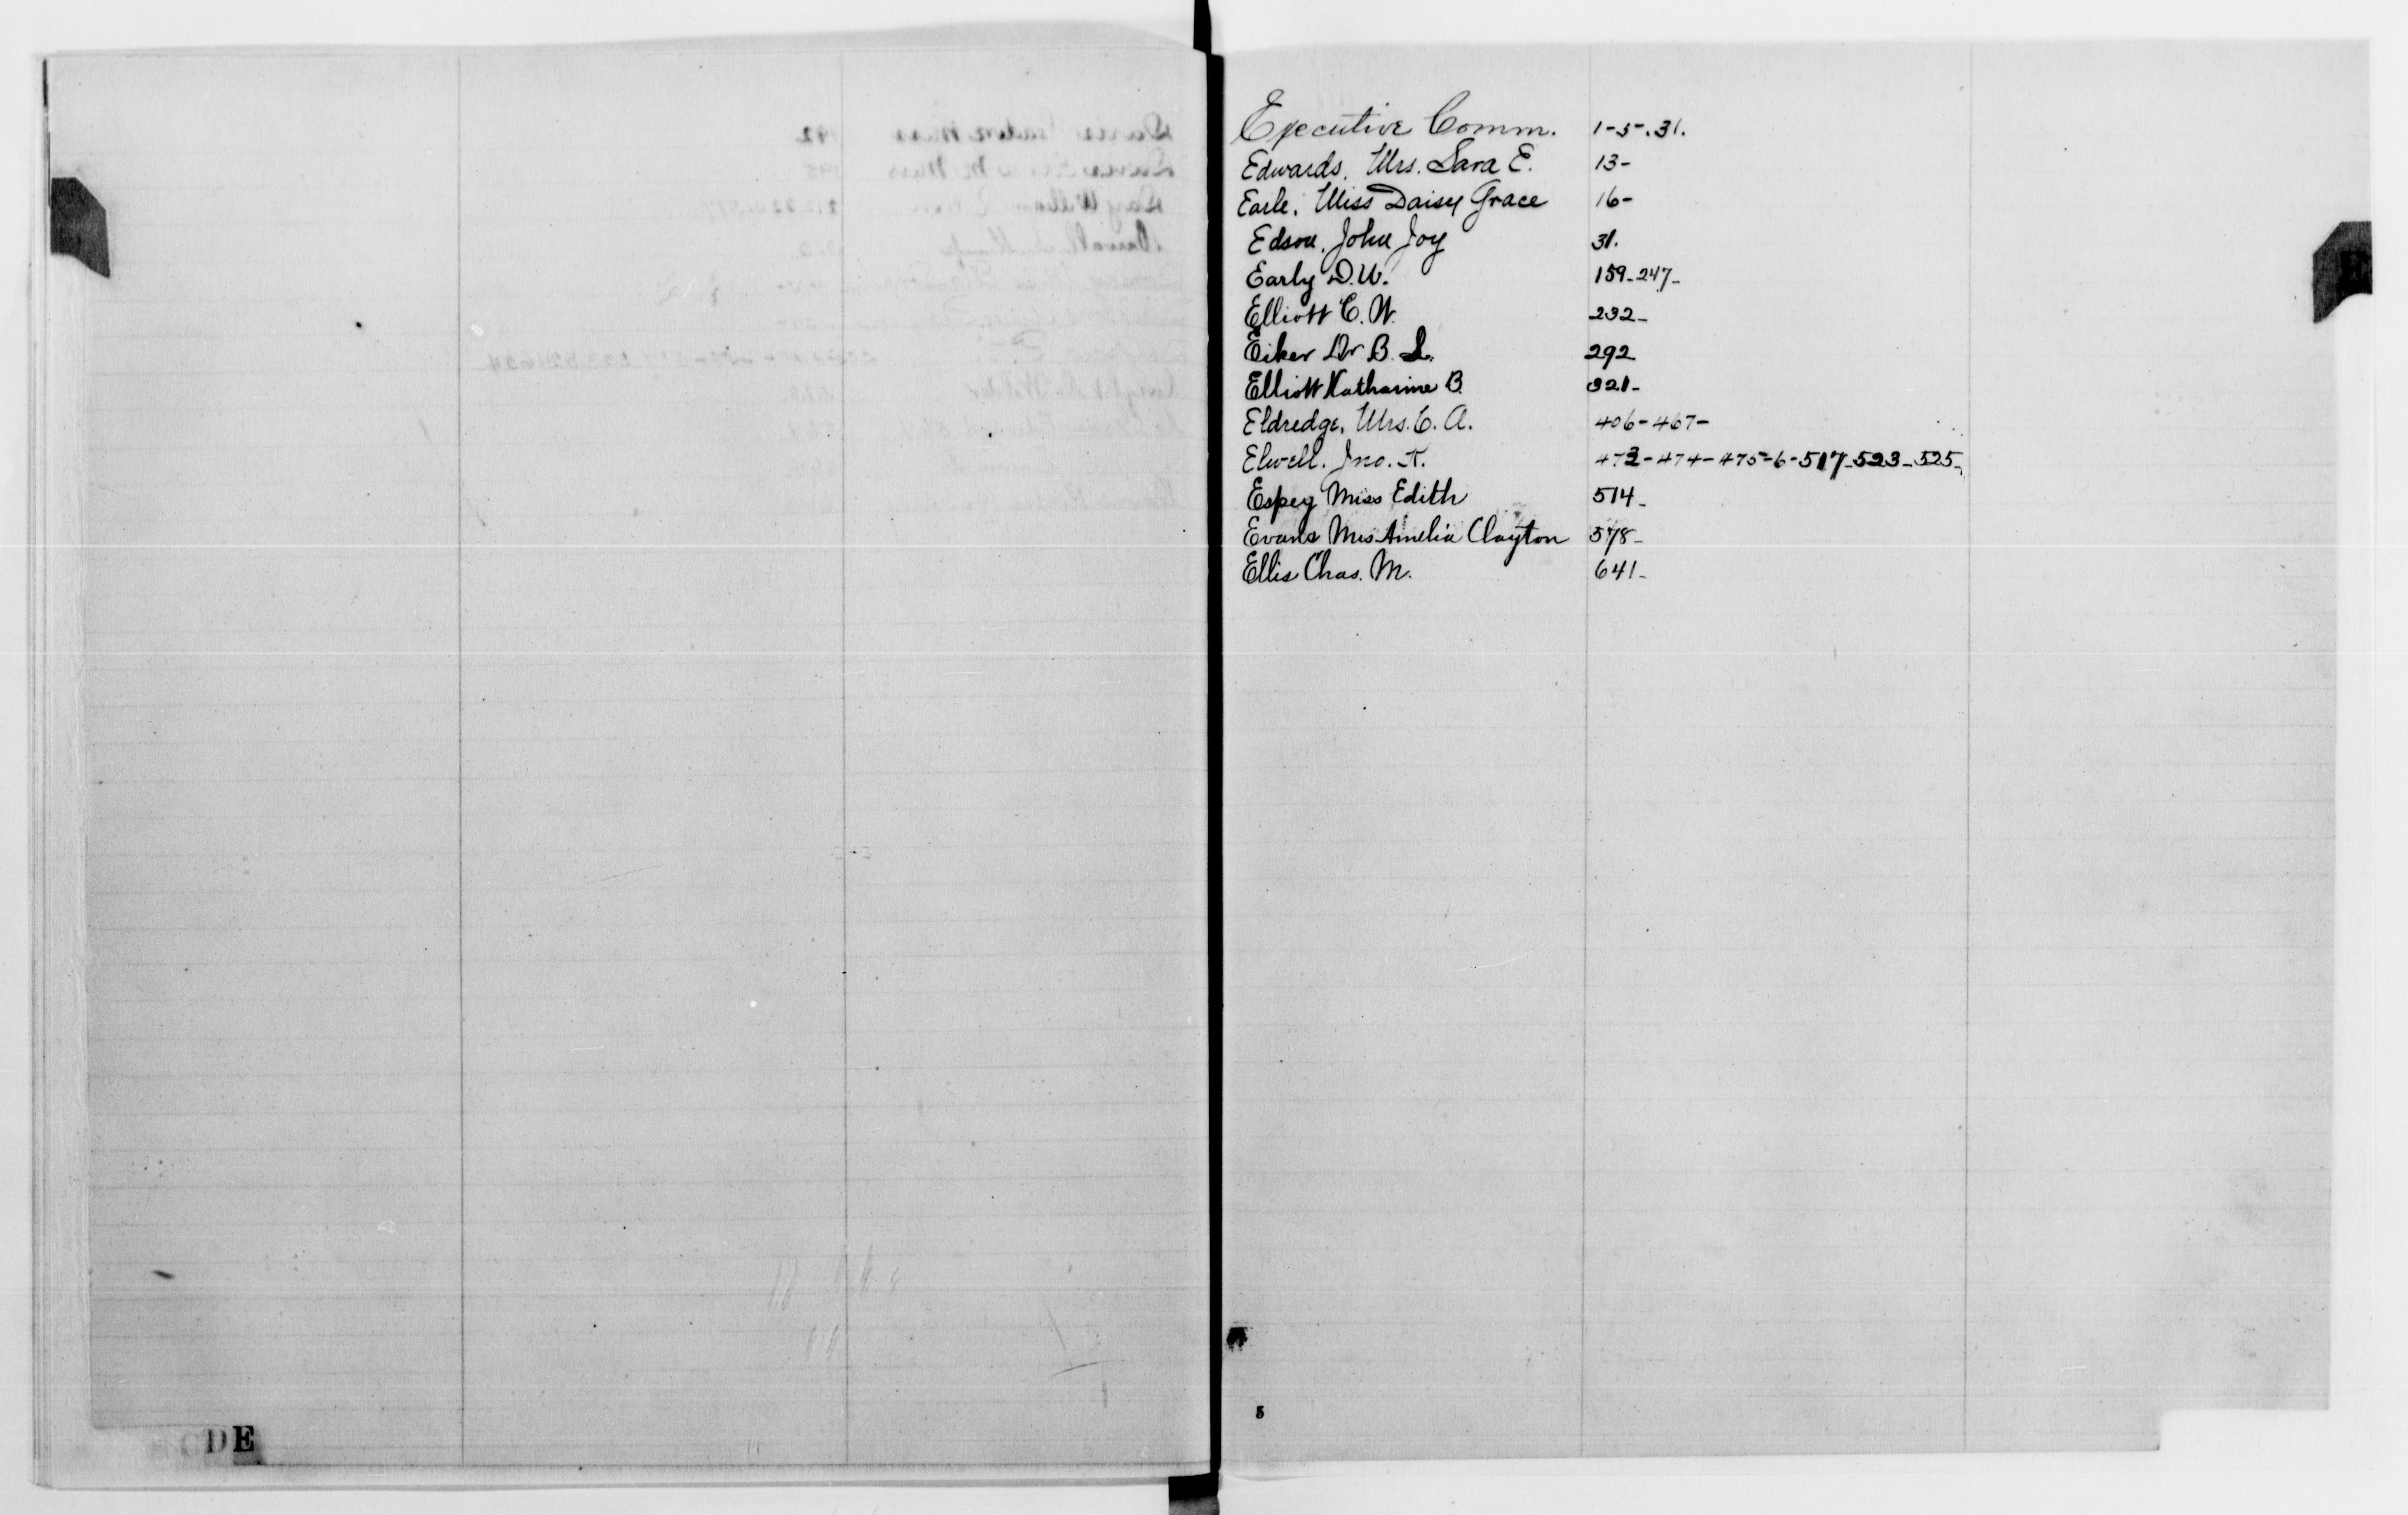 Executive Comm. 1-5-.31.
Edwards, Mrs. Sara E. 13-
Earle, Miss Daisy Grace 16-
Edson, John Joy 31.
Early D.W. 159-247-
Elliott C. W. 232-
Eiker Dr B. L. 292
Elliott Katharine B. 321-
Eldredge, Mrs. C. A. 406-467-
Elwell, Jno. K. 473-474-475-6-517-523-525-
Espey Miss Edith 514-
Evans Mrs Amelia Clayton 578-
Ellis Chas. M. 641-
5
CDE